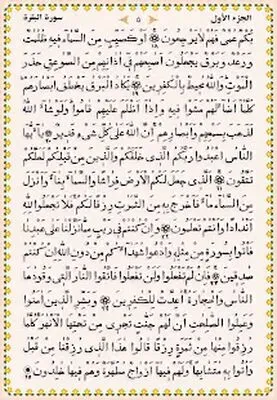 الجزء الأول ٥ سورة البقرة
بكم عمى فهم لا يرجعون أو كصيب من السماء فيه ظلمت
ورعد وبرق يجعلون أصبعهم في آذانهم من الصوعق حذر
الموت والله محيط بالكفرين يكاد البرق يخطف أبصرهم
كلما أضاء لهم مشوا فيه وإذا أظلم عليهم قاموا ولو شاء الله
لذهب بسمعهم وأبصرهم إن الله على كل شيء قدير يأيها
الناس اعبدوا ربكم الذي خلقكم والذين من قبلكم لعلكم
تتقون الذي جعل لكم الأرض فرشا والسماء بناء وأنزل
من السماء ماء فأخرج به من الثمرت رزقا لكم فلا تجعلوا لله
أندادا وأنتم تعلمون وإن كنتم في ريب مما نزلنا على عبدنا
فأتوا بسورة من مثله وادعوا شهداءكم من دون الله إن كنتم
صدقين فإن لم تفعلوا ولن تفعلوا فاتقوا النار التي وقودها
الناس والحجارة أعدت للكفرين وبشر الذين آمنوا
وعملوا الصلحت أن لهم جنت تجري من تحتها الأنهر كلما
رزقوا منها من ثمرة رزقا قالوا هذا الذي رزقنا من قبل
وأتوا به متشبها ولهم فيها أزوج مطهرة وهم فيها خلدون